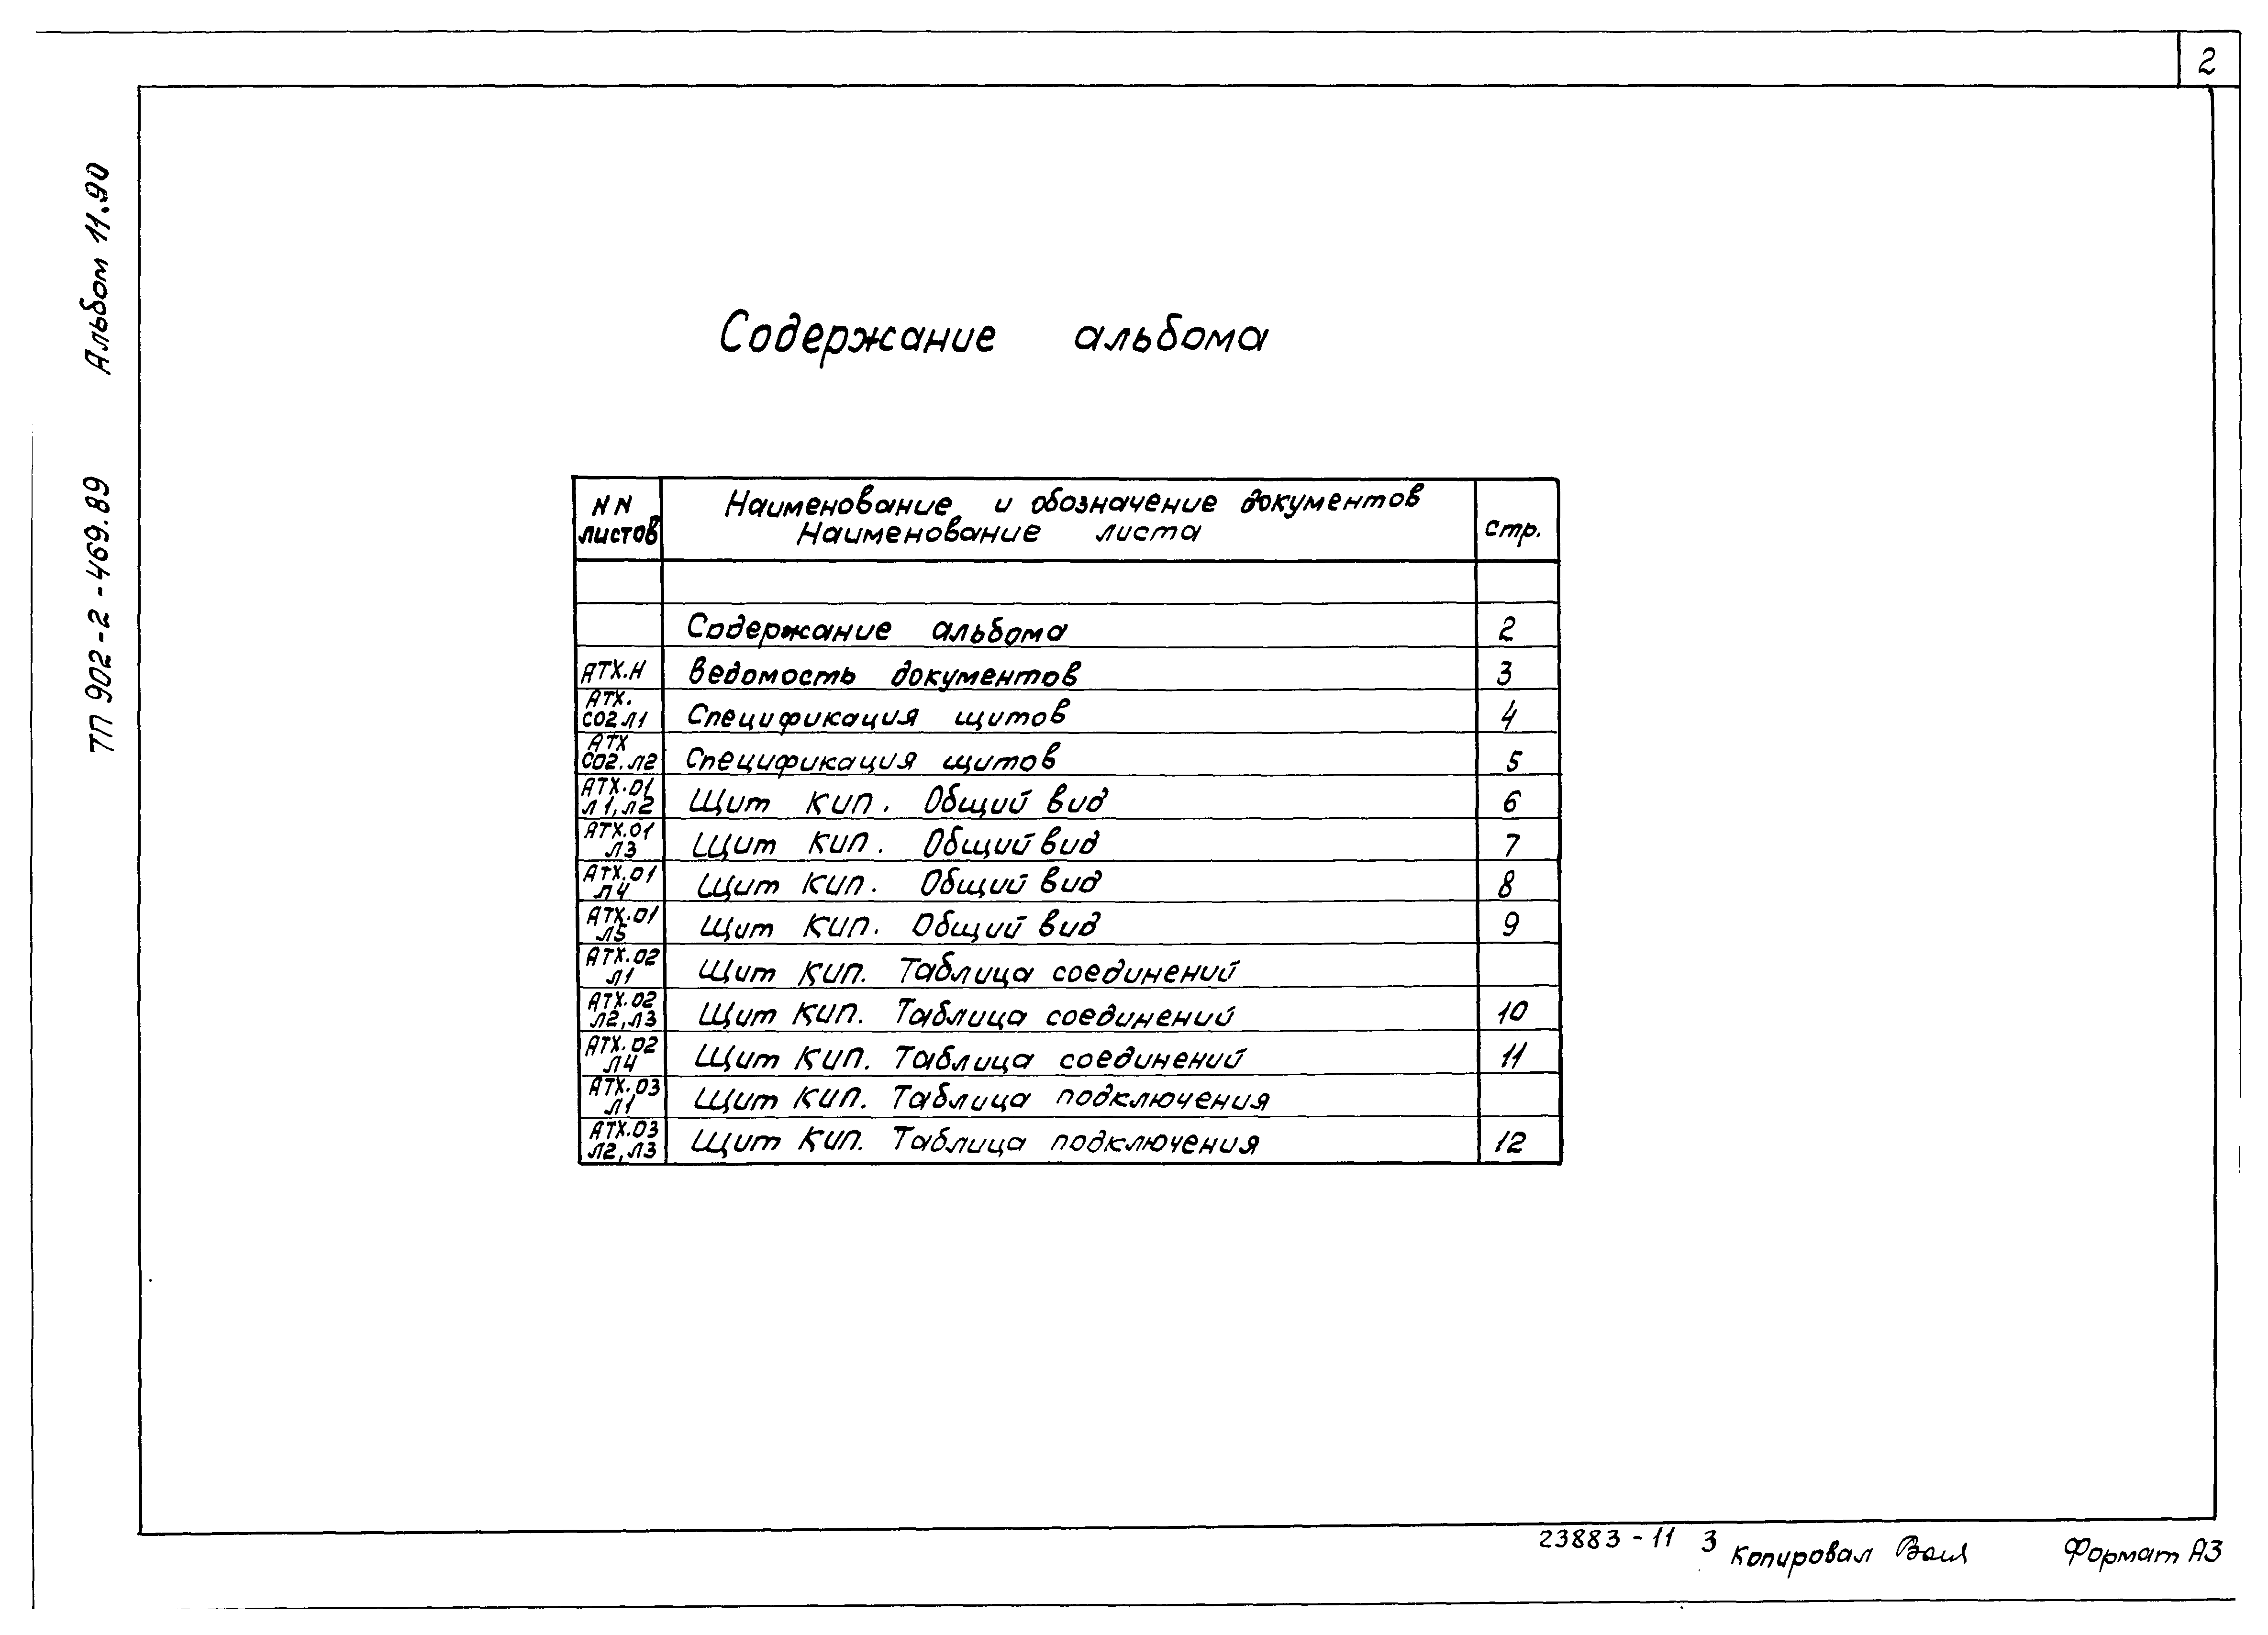 2
Альбом 11.90
ТП 902-2-469.89
Содержание альбома
NN листов
Наименование и обозначение документов
Наименование листа
стр.
Содержание альбома 2
АТХ.Н Ведомость документов 3
АТХ. СО2 Л1 Спецификация щитов 4
АТХ СО2.Л2 Спецификация щитов 5
АТХ.01 Л1,Л2 Щит КИП. Общий вид 6
АТХ.01 Л3 Щит КИП. Общий вид 7
АТХ.01 Л4 Щит КИП. Общий вид 8
АТХ.01 Л5 Щит КИП. Общий вид 9
АТХ.02 Л1 Щит КИП. Таблица соединений
АТХ.02 Л2,Л3 Щит КИП. Таблица соединений 10
АТХ.02 Л4 Щит КИП. Таблица соединений 11
АТХ.03 Л1 Щит КИП. Таблица подключения
АТХ.03 Л2,Л3 Щит КИП. Таблица подключения 12
23883-11 3 Копировал Формат А3